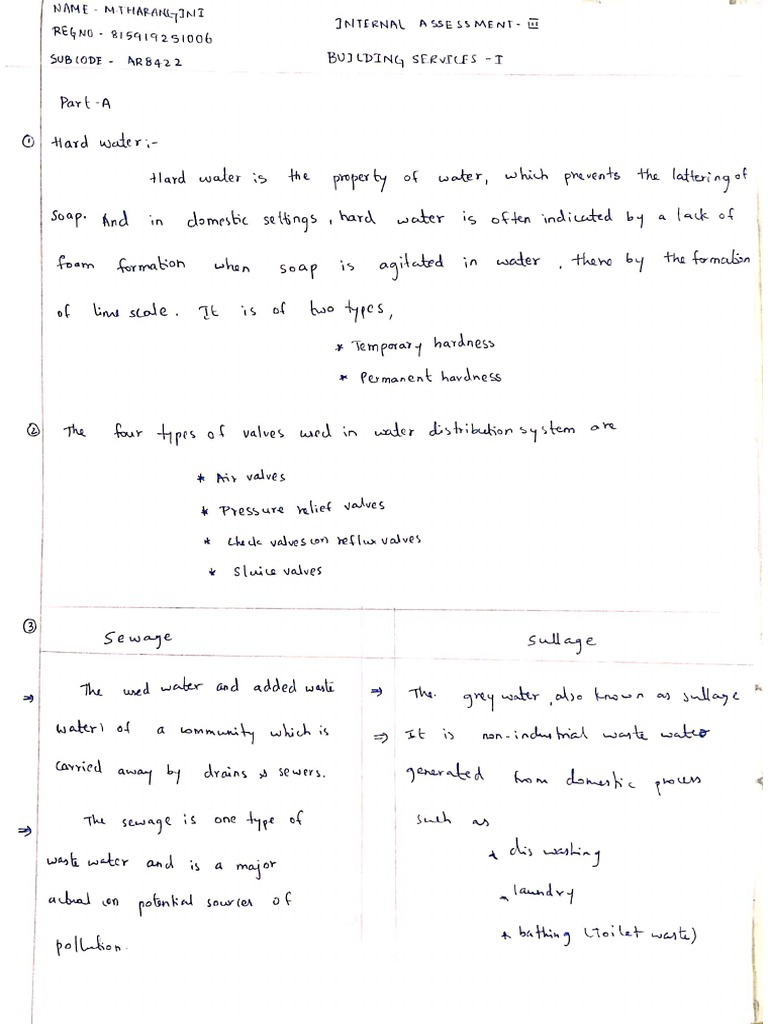 NAME - M.THARANGINI
INTERNAL ASSESSMENT - III
REGNO - 815919251006
SUBCODE - AR8422
BUILDING SERVICES - I
Part-A
① Hard water:-
Hard water is the property of water, which prevents the lattering of
soap. And in domestic settings, hard water is often indicated by a lack of
foam formation when soap is agitated in water, there by the formation
of lime scale. It is of two types,
* Temporary hardness
* Permanent hardness
② The four types of valves used in water distribution system are
* Air valves
* Pressure relief valves
* check valves (or) reflux valves
* Sluice valves
③ Sewage
Sullage
⇒ The used water and added waste
water) of a community which is
carried away by drains & sewers.
⇒ The sewage is one type of
waste water and is a major
actual (or) potential sources of
pollution.
⇒ The grey water, also known as sullage
⇒ It is non-industrial waste water
generated from domestic process
such as
* dis washing
* laundry
* bathing (Toilet waste)